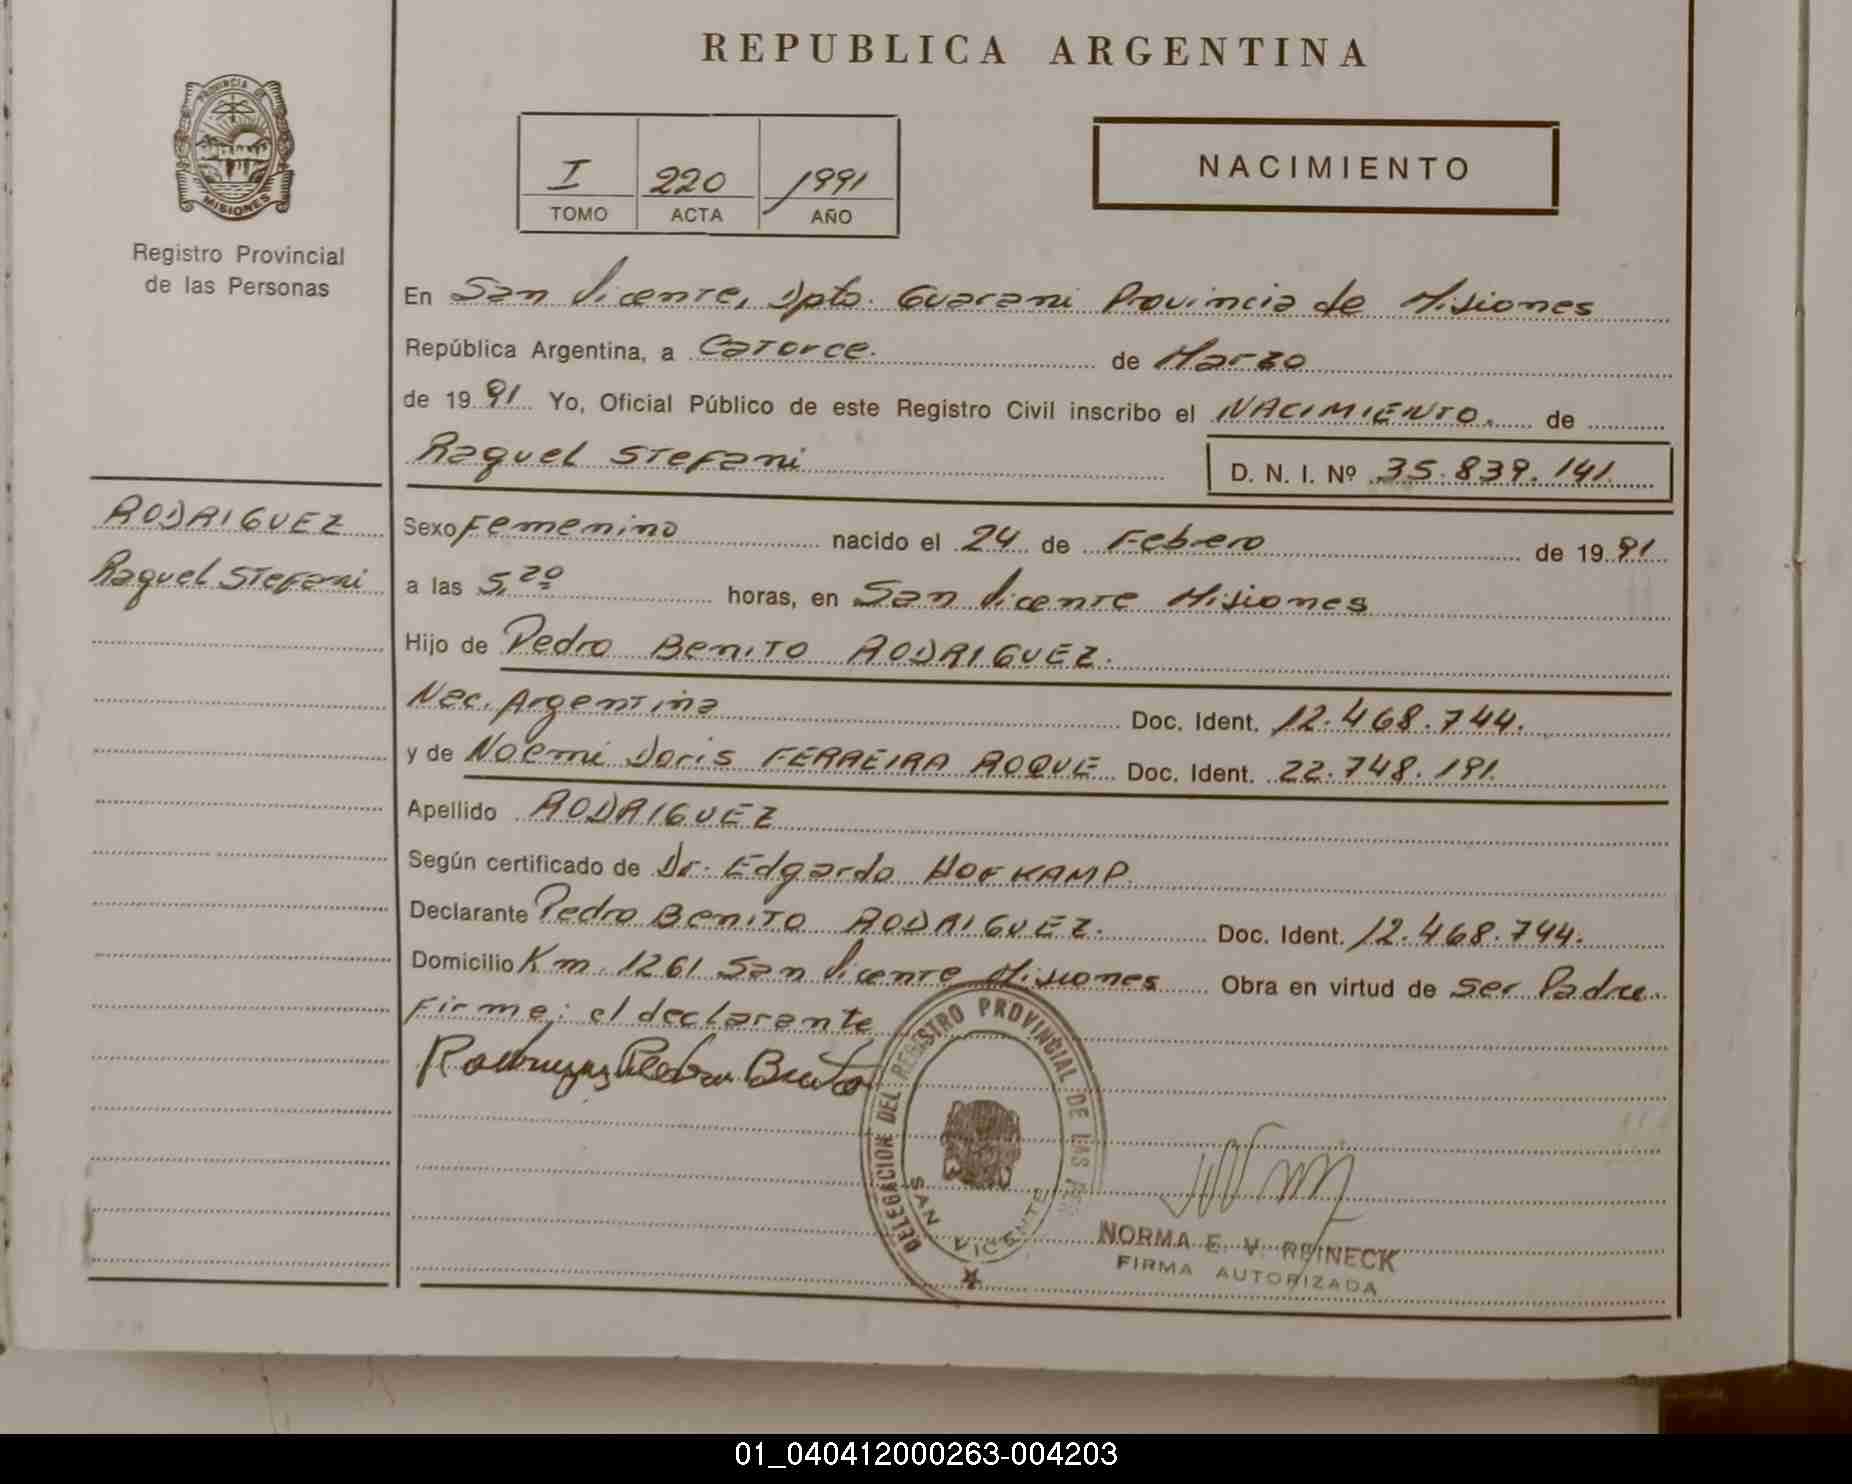 REPUBLICA ARGENTINA
PROVINCIA DE
MISIONES
Registro Provincial
de las Personas
I 220 1991
TOMO ACTA AÑO
NACIMIENTO
En San Vicente, Dpto. Guarani Provincia de Misiones
República Argentina, a Catorce. de Marzo
de 1991 Yo, Oficial Público de este Registro Civil inscribo el NACIMIENTO. de
Raquel Stefani D. N. I. Nº 35.839.141
RODRIGUEZ
Raquel Stefani
Sexo Femenino nacido el 24 de Febrero de 1991
a las 5,20 horas, en San Vicente Misiones
Hijo de Pedro Benito RODRIGUEZ.
Nac. Argentina Doc. Ident. 12.468.744.
y de Noemi Doris FERREIRA ROQUE Doc. Ident. 22.748.191.
Apellido RODRIGUEZ
Según certificado de Dr. Edgardo HOFKAMP.
Declarante Pedro Benito RODRIGUEZ. Doc. Ident. 12.468.744.
Domicilio Km. 1261 San Vicente Misiones Obra en virtud de ser Padre.
Firme: el declarante
Rodriguez Pedro Benito
DELEGACION DEL REGISTRO PROVINCIAL DE LAS
SAN VICENTE
NORMA E. V. REINECK
FIRMA AUTORIZADA
01_040412000263-004203